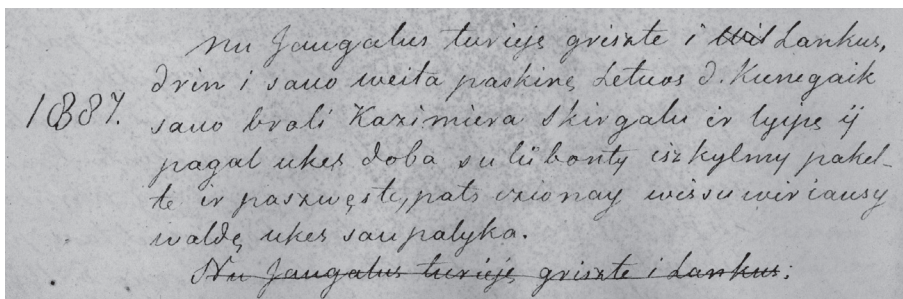 Nu Jaugalus turieję griszte i Lankus,
drin i sawo weita paskinę Letuos d. Kunegaik
1387. sawo brali Kazimiera Skirgalu ir lyipę ij
pagal ukes doba su lübonty iszkylmy pakel-
te ir paszwęste, pats czionay wissuwirsiausy
waldę ukes saupalyka.
Nu Jaugalus turieję griszte i Lankus;